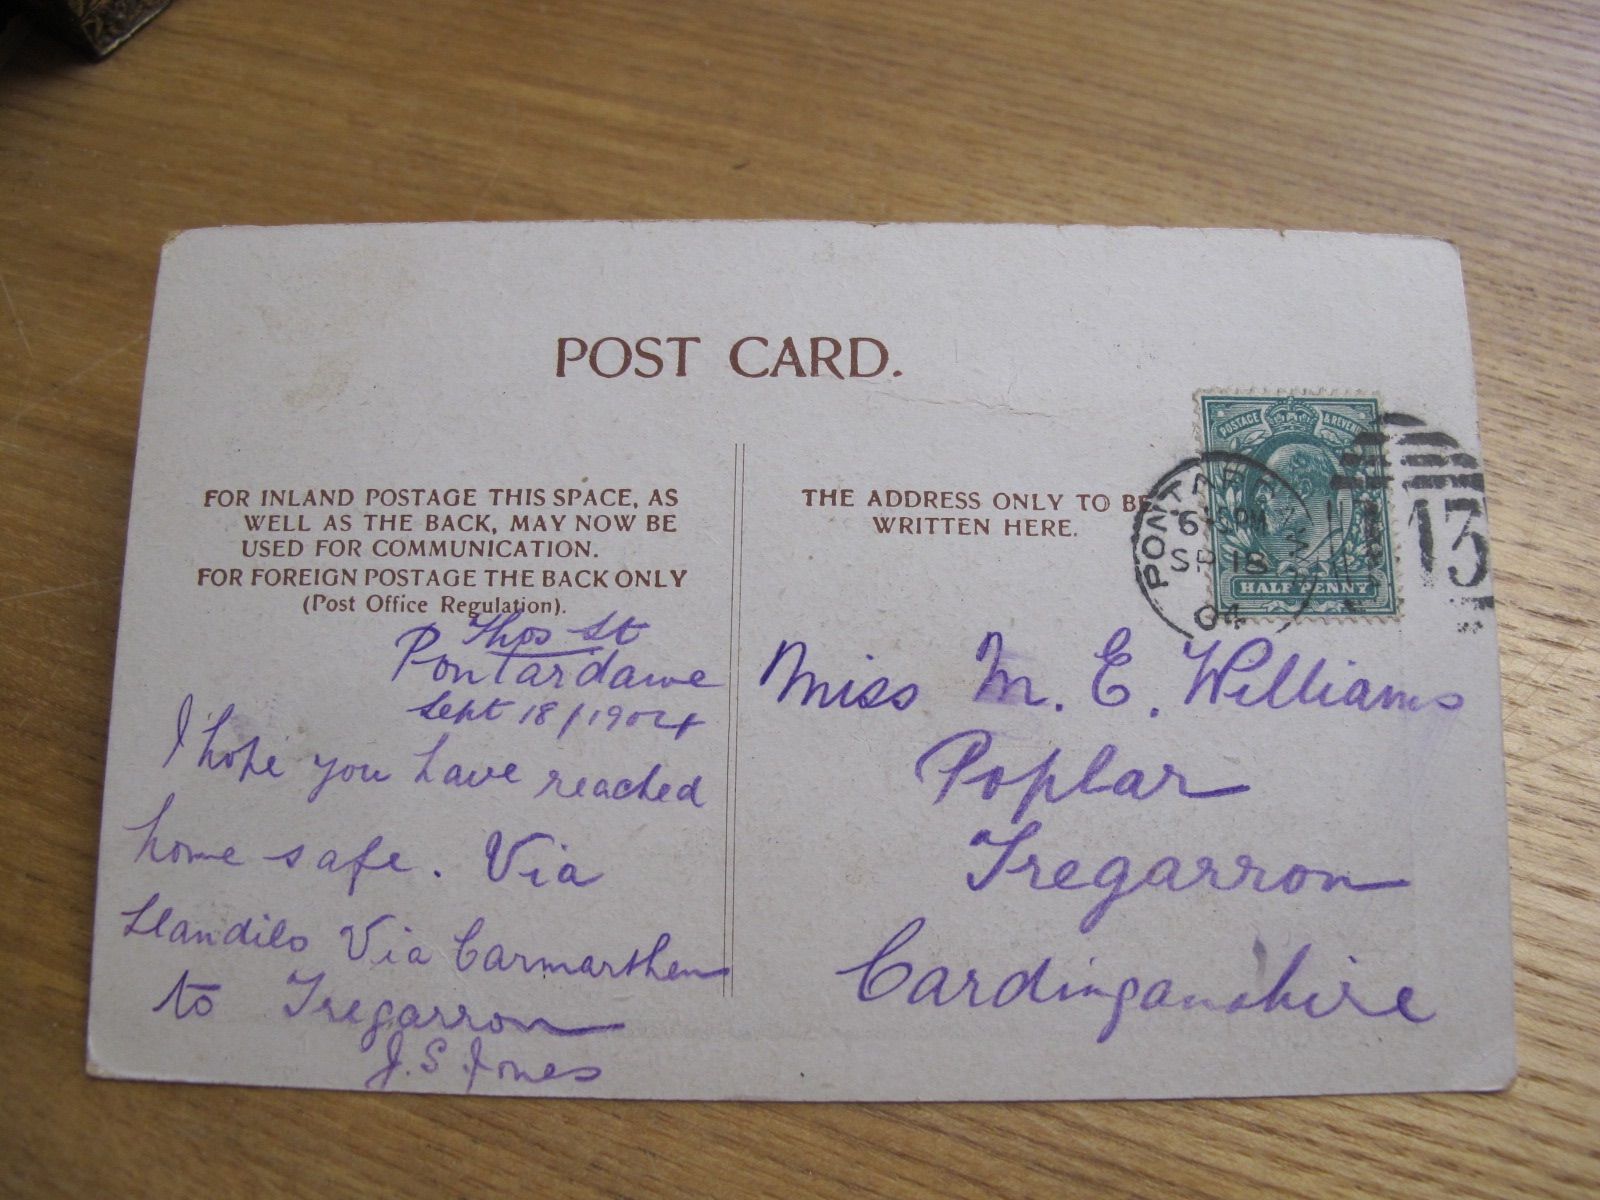 POST CARD.
FOR INLAND POSTAGE THIS SPACE, AS
WELL AS THE BACK, MAY NOW BE
USED FOR COMMUNICATION.
FOR FOREIGN POSTAGE THE BACK ONLY
(Post Office Regulation).
Thos St
Pontardawe
Sept 18/1904
I hope you have reached
home safe. Via
Llandilo Via Carmarthen
to Tregarron
J.S. Jones
THE ADDRESS ONLY TO BE
WRITTEN HERE.
POSTAGE & REVENUE
HALF PENNY
SP 18
04
13
Miss M. E. Williams
Poplar
Tregarron
Cardinganshire